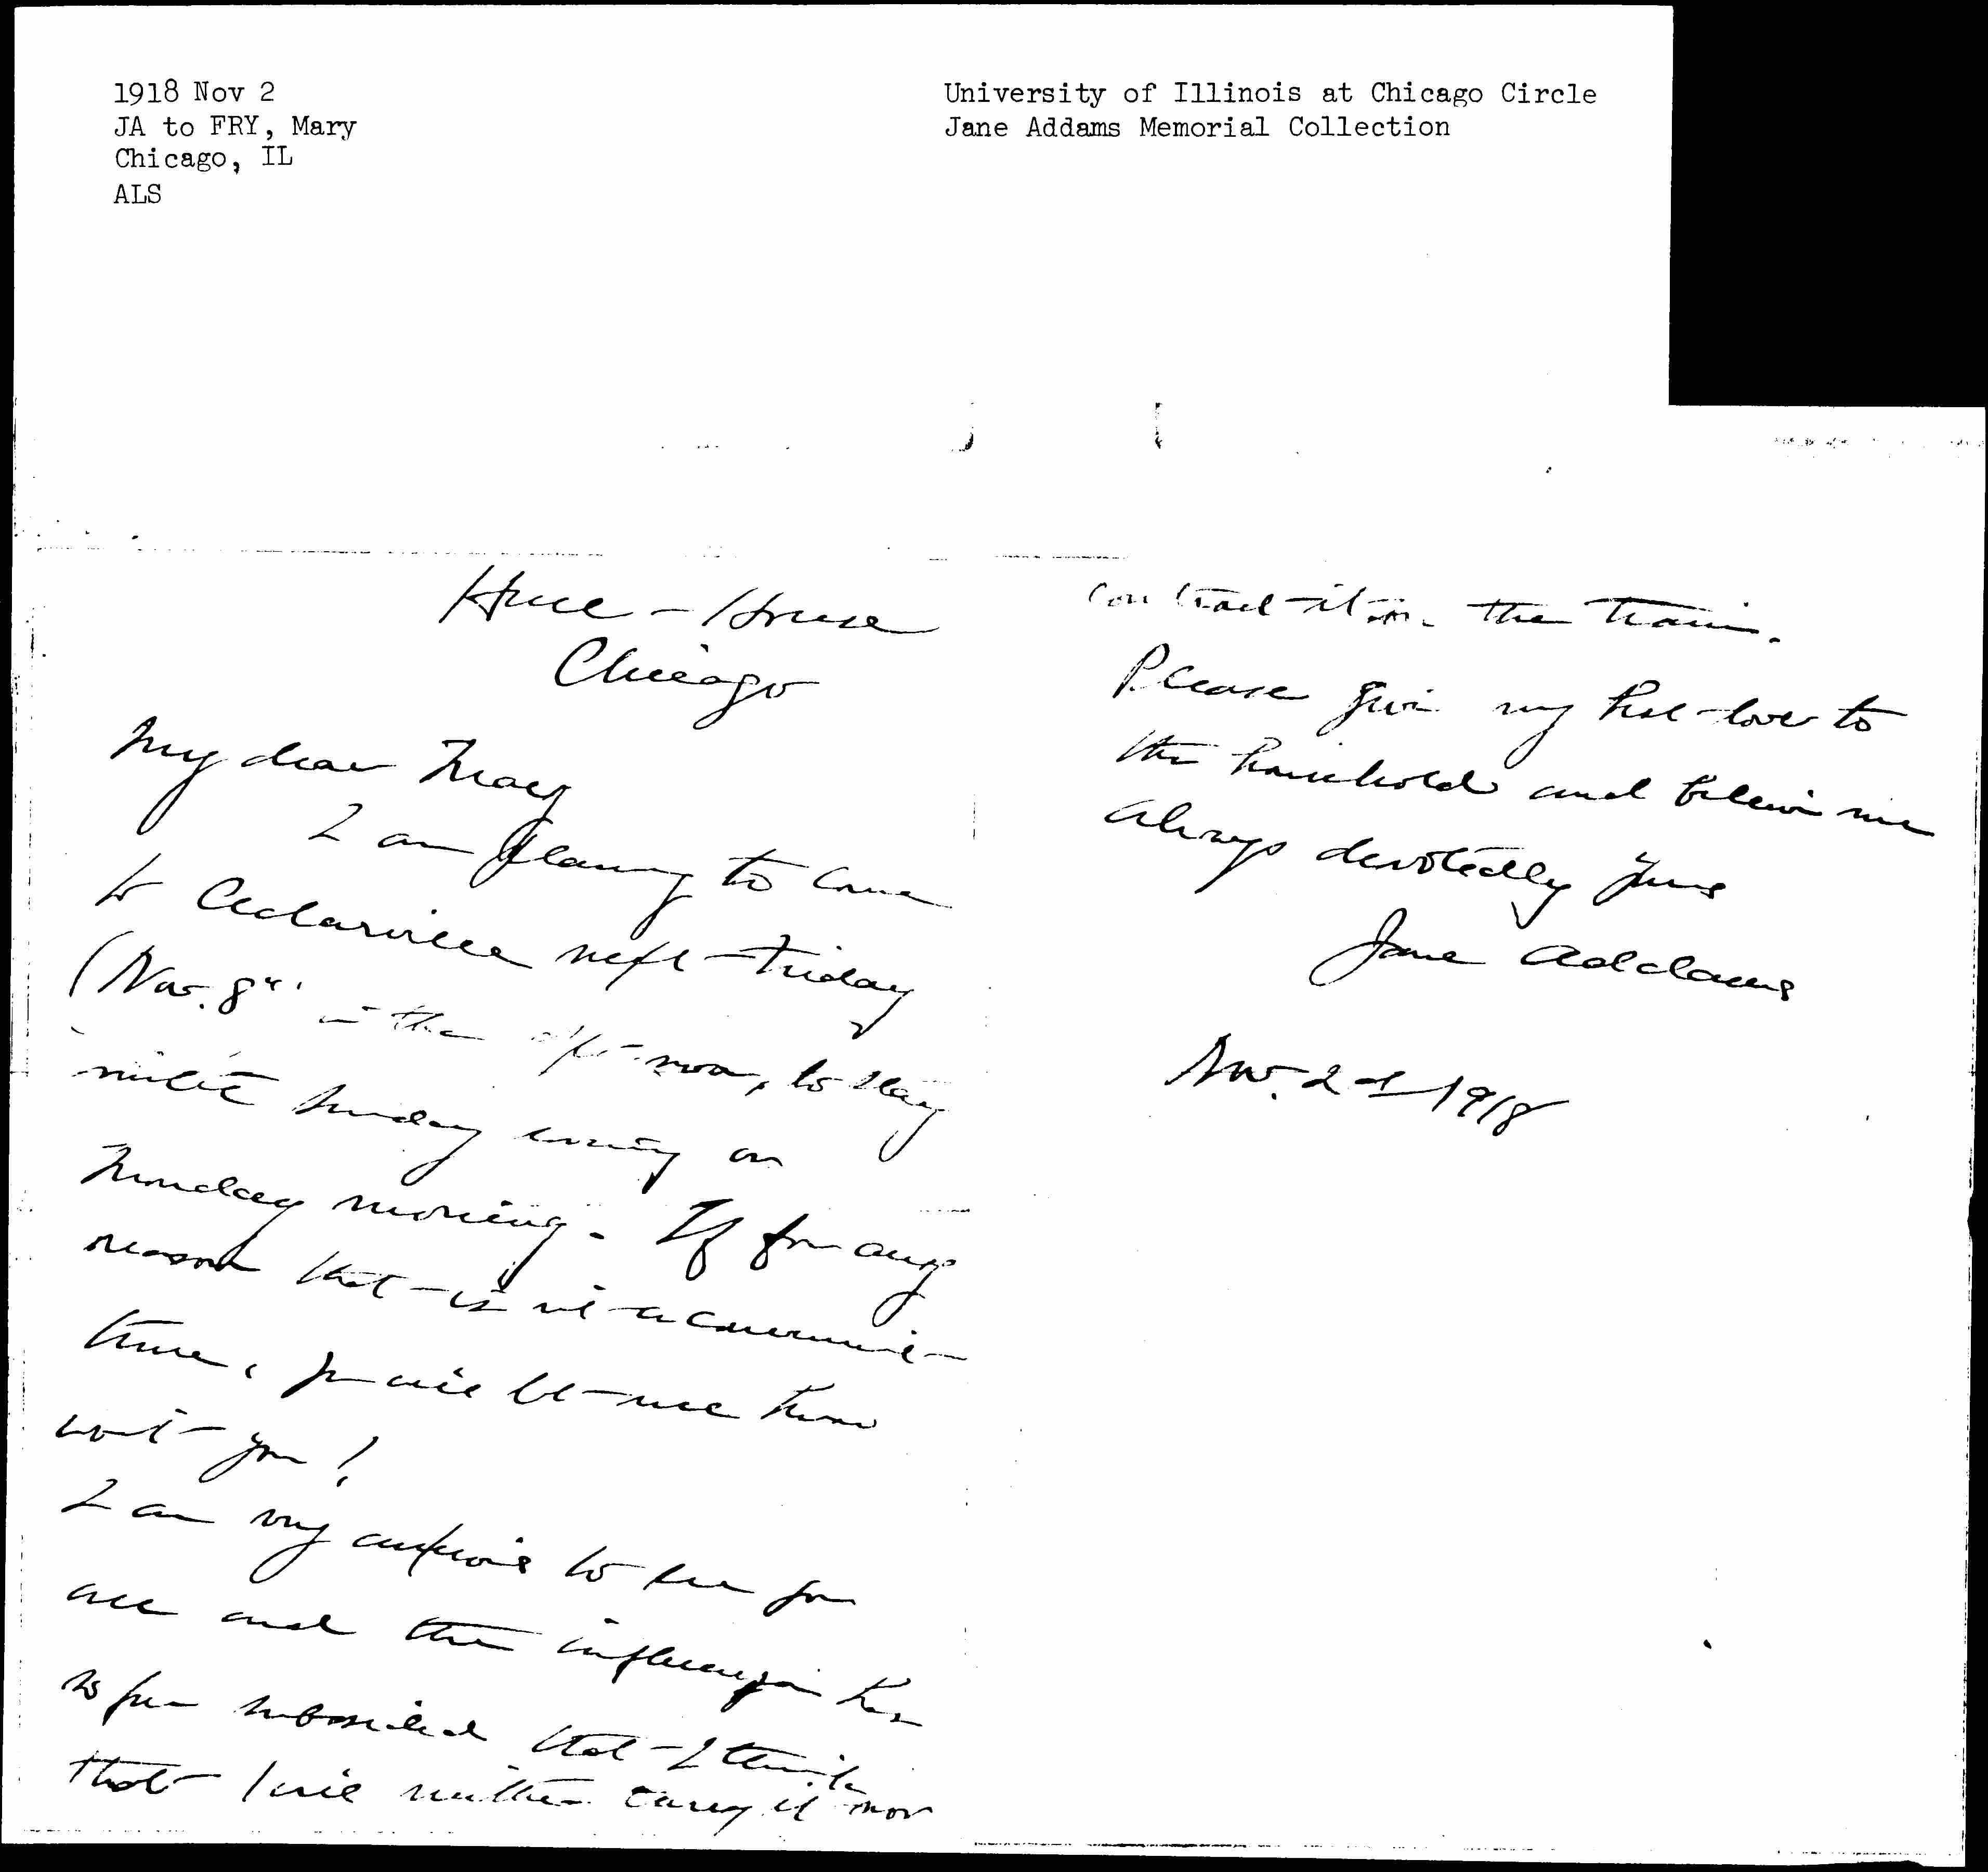 1918 Nov 2
JA to FRY, Mary
Chicago, IL
ALS
University of Illinois at Chicago Circle
Jane Addams Memorial Collection
Hull-House
Chicago
My dear Mary
I am planning to come
to Cedarville next Friday
(Nov. 8" in the afternoon, to stay
until Sunday evening or
Monday morning. If for any
reason that is not a convenient
time, you will let me know
won't you!
I am very anxious to see you
all and the influenza has
so far subsided that I think
that I will neither carry it nor
contract it on the train.
Please give my best love to
the household and believe me
always devotedly yours
Jane Addams
Nov. 2d 1918